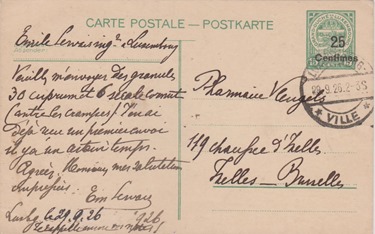 CARTE POSTALE – POSTKARTE
25
Centimes
29.9.26
VILLE
Emile Servais ingr Luxembourg
Veuillez m'envoyer des granules
30 cuprum et 6 secale cornut
Contre les crampes. J'en ai
Déjà reçu un premier envoi
il y a un certain temps.
Agréez, Monsieur, mes salutations
Em Servais
29.9.26
Pharmacie
119 chaussée d'Ixelles
Ixelles – Bruxelles